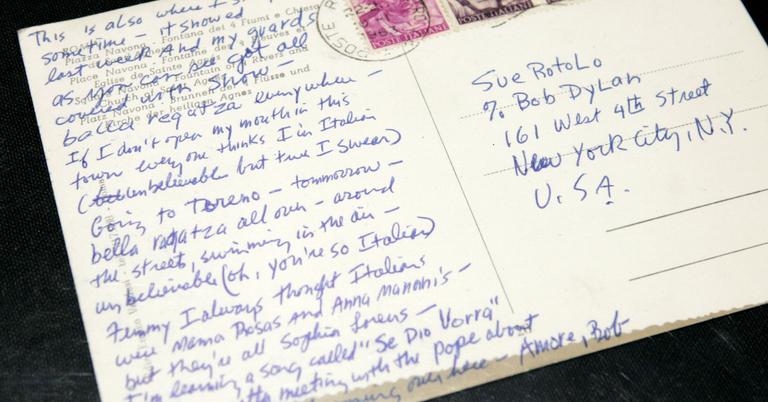 This is also where I
sometime – it showed
last week and my guards
as you can see got all
covered with snow –
bella regatza everywhere –
If I don't open my mouth in this
town everyone thinks I'm Italian
(unbelievable but true I swear)
Going to Toreno – tommorrow –
bella ragatza all over – around
the street, swimming in the air –
unbelievable (oh, you're so Italian)
Funny I always thought Italians
were Mama Rosas and Anna Mannani's –
but they're all Sophia Lorens –
I'm learning a song called "Se Dio Vorra"
meeting with the pope about
over here – Amore, Bob
Piazza Navona - Fontana dei 4 Fiumi e Chiesa
Place Navona - Fontaine des 4 Fleuves et
Eglise de Sainte Agnes
Church of Saint Agnes
Rivers and
Platz Navona - Brunnen der Flüsse und
Kirche der heiligen Agnes
POSTE ITALIANE
POSTE ITALIANE
Sue Rotolo
% Bob Dylan
161 West 4th Street
New York City, N.Y.
U.S.A.